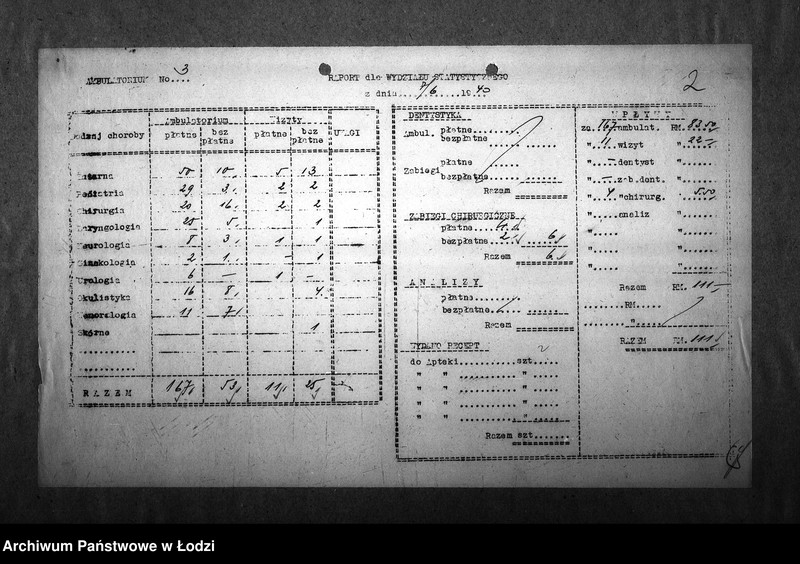 AMBULATORIUM No. 3
RAPORT dla WYDZIAŁU STATYSTYCZNEGO
z dnia 8/6 1940
2
Rodzaj choroby Ambulatorium Wizyty UWAGI
płatne bez płatne płatne bez płatne
Interna 50 10 5 13
Pediatria 29 3 2 2
Chirurgia 20 16 2 2
Laryngologia 25 5 1
Neurologia 8 3 1 1
Ginekologia 2 1 - 1
Urologia 6 - 1 -
Okulistyka 16 8 4
Wenerologia 11 7
Skórne 1
RAZEM 167 53 11 25
DENTYSTYKA
Ambul. płatne
bezpłatne
Zabiegi płatne
bezpłatne
Razem
ZABIEGI CHIRURGICZNE
płatne 4
bezpłatne 2 6
Razem 6
ANALIZY
płatne
bezpłatne
Razem
WYDANO RECEPT
do Apteki szt.
" " "
" " "
" " "
Razem szt
WPŁYWY
za 167 ambulat. RM. 83.50
" 11 wizyt " 22.-
" - dentyst "
" - zab.dent. "
" 4 "chirurg. " 5.50
" analiz "
" "
" "
Razem RM. 111.-
RM.
"
RAZEM RM. 111
Archiwum Państwowe w Łodzi